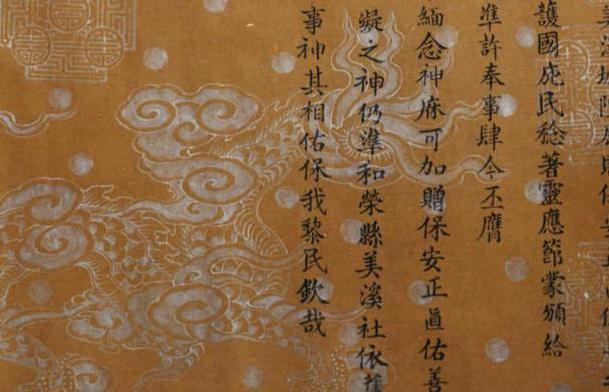 護國庇民稔著靈應節蒙頒給
準許奉事肆今丕膺
緬念神庥可加贈保安正直佑善
凝之神仍準和榮縣美溪社依舊
事神其相佑保我黎民欽哉